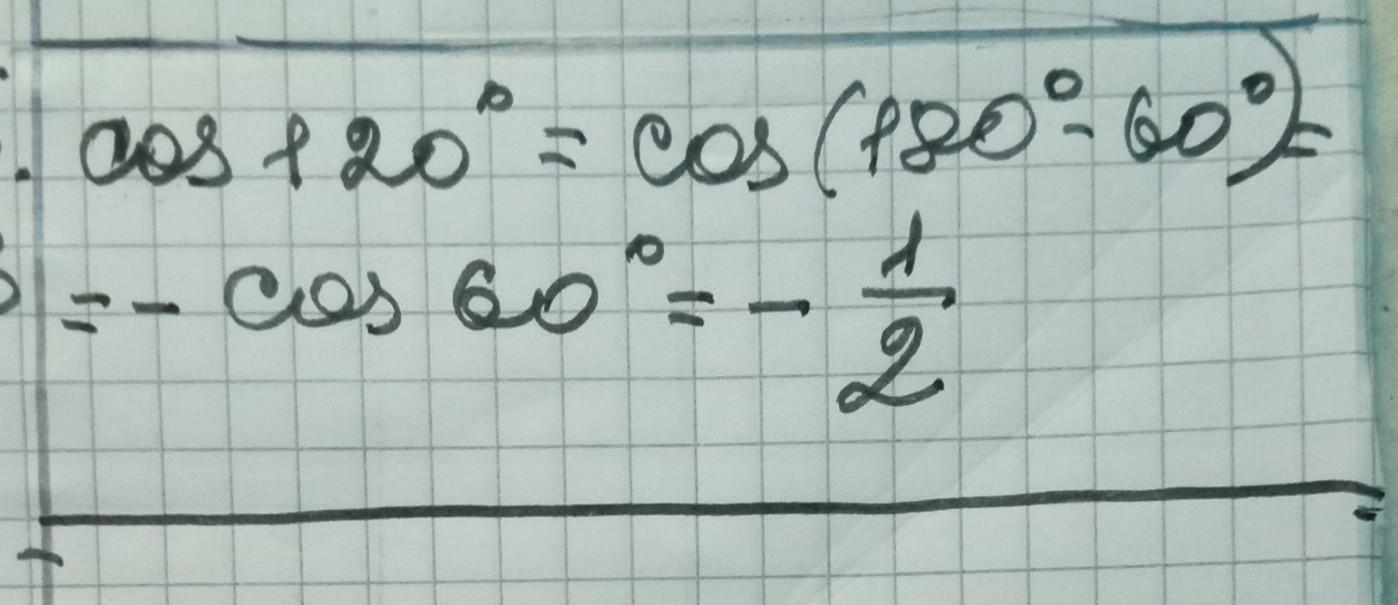 cos 120° = cos(180° - 60°) =
= - cos 60° = - 1/2